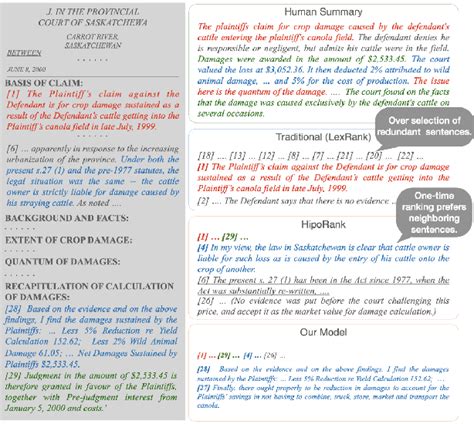 J. IN THE PROVINCIAL
COURT OF SASKATCHEWA
CARROT RIVER,
SASKATCHEWAN
BETWEEN
. . . . . .
JUNE 8, 2000
BASIS OF CLAIM:
[1] The Plaintiff's claim against the
Defendant is for crop damage sustained as a
result of the Defendant's cattle getting into the
Plaintiff's canola field in late July, 1999.
. . . . . .
[6] ... apparently in response to the increasing
urbanization of the province. Under both the
present s.27 (1) and the pre-1977 statutes, the
legal situation was the same -- the cattle
owner is strictly liable for damage caused by
his straying cattle. As noted ....
BACKGROUND AND FACTS:
. . . . . .
EXTENT OF CROP DAMAGE:
. . . . . .
QUANTUM OF DAMAGES:
. . . . . .
RECAPITULATION OF CALCULATION
OF DAMAGES:
[28] Based on the evidence and on the above
findings, I find the damages sustained by the
Plaintiffs: ... Less 5% Reduction re Yield
Calculation 152.62; ... Less 2% Wild Animal
Damage 61.05; ... Net Damages Sustained by
Plaintiffs $2,533.45.
[29] Judgment in the amount of $2,533.45 is
therefore granted in favour of the Plaintiffs,
together with Pre-judgment interest from
January 5, 2000 and costs.'
Human Summary
The plaintiffs claim for crop damage caused by the defendant's
cattle entering the plaintiff's canola field. The defendant denies he
is responsible or negligent, but admits his cattle were in the field.
Damages were awarded in the amount of $2,533.45. The court
valued the loss at $3,052.36. It then deducted 2% attributed to wild
animal damage, ... and for the cost of production. The issue
here is the quantum of the damage. .... The court found on the facts
that the damage was caused exclusively by the defendant's cattle on
several occasions.
Over selection of
redundant sentences.
Traditional (LexRank)
[18] .... [13] ... [8] ... [7] ... [21] ... [20] ... [22] ...
[1] The Plaintiff's claim against the Defendant is for crop damage
sustained as a result of the Defendant's cattle getting into the
Plaintiff's canola field in late July, 1999.
[2] ... The Defendant says that there is no evidence ...
One-time
ranking prefers
neighboring
sentences.
HipoRank
[1] ... [29] ...
[4] In my view, the law in Saskatchewan is clear that cattle owner is
liable for such loss as is caused by the entry of his cattle onto the
crop of another.
[6] The present s. 27 (1) has been in the Act since 1977, when the
Act was substantially re-written, ....
[26] ... (No evidence was put before the court challenging this
price, and accept it as the market value for damage calculation.)
Our Model
[1] ... [29] ... [4] ... [26] ...
[28] Based on the evidence and on the above findings, I find the
damages sustained by the Plaintiffs: ... Less 5% Reduction re Yield Calculation 152.62; ...
[27] Finally, there ought properly to be reduction in damages to account for the
Plaintiff's savings in not having to combine, truck, store, market and transport the
canola.